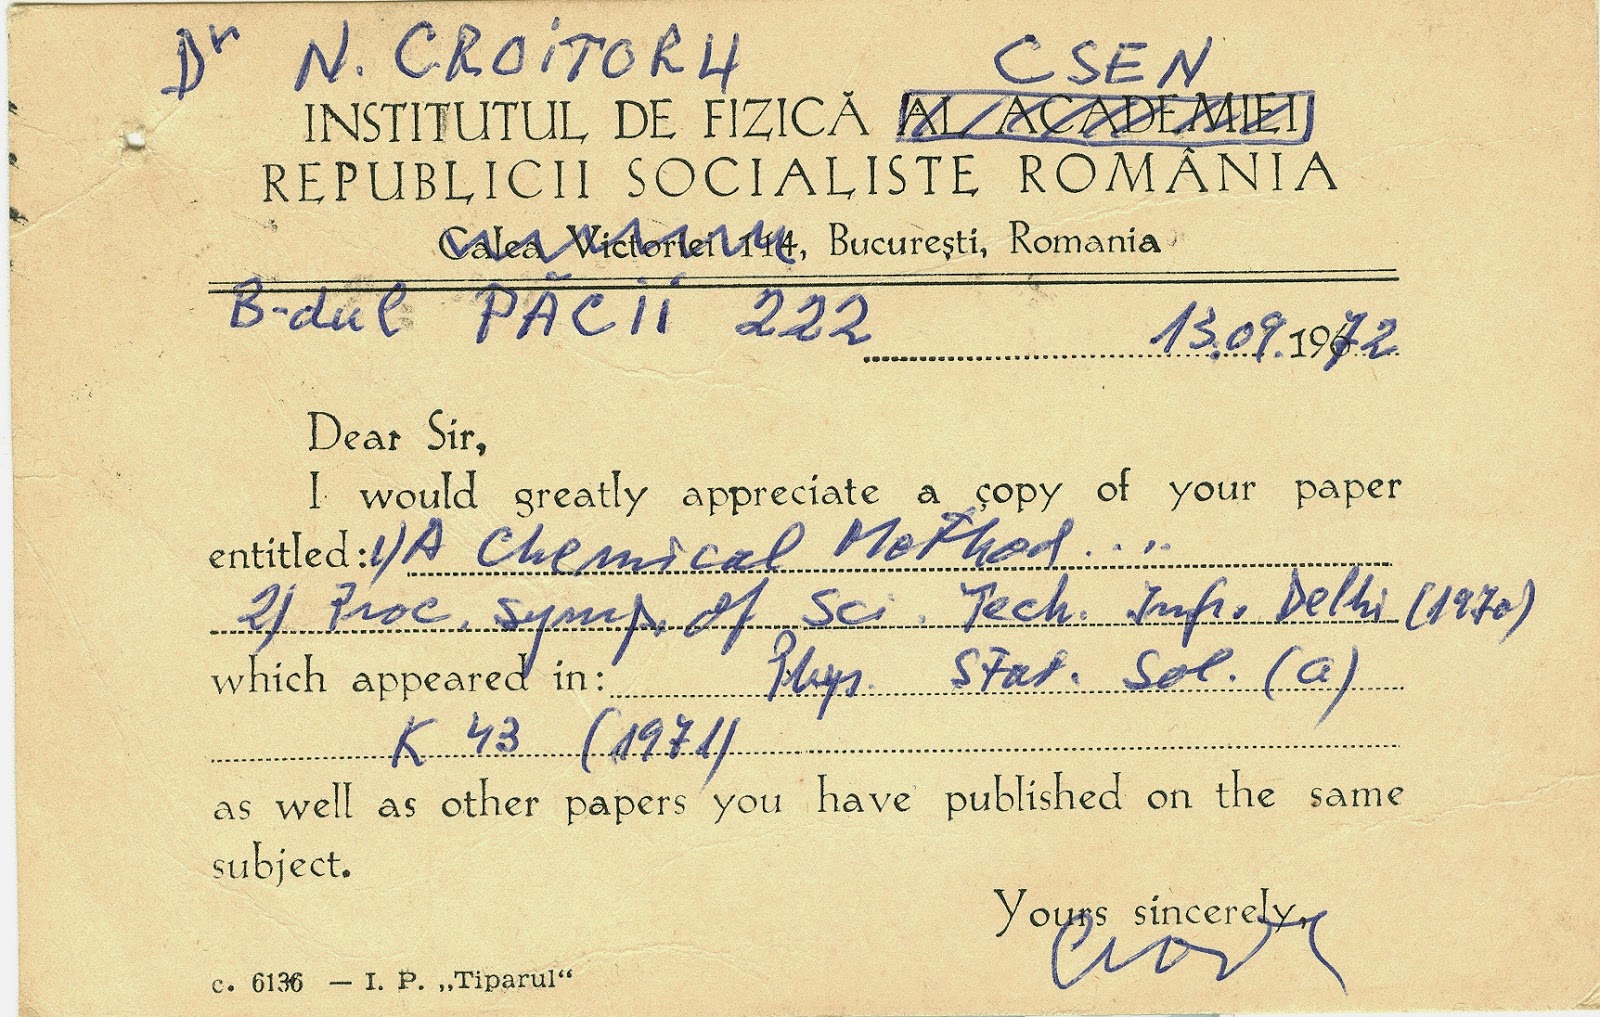 Dr N. CROITORU CSEN
INSTITUTUL DE FIZICĂ AL ACADEMIEI
REPUBLICII SOCIALISTE ROMÂNIA
Calea Victoriei 114, București, Romania
B-dul PĂCII 222
13.09.1972
Dear Sir,
I would greatly appreciate a copy of your paper
entitled: 1) A Chemical Method.....
2) Proc. Symp. of Sci. Tech. Inf. Delhi (1970)
which appeared in: Phys. Stat. Sol. (a)
K 43 (1971)
as well as other papers you have published on the same
subject.
Yours sincerely,
c. 6136 — I. P. „Tiparul“